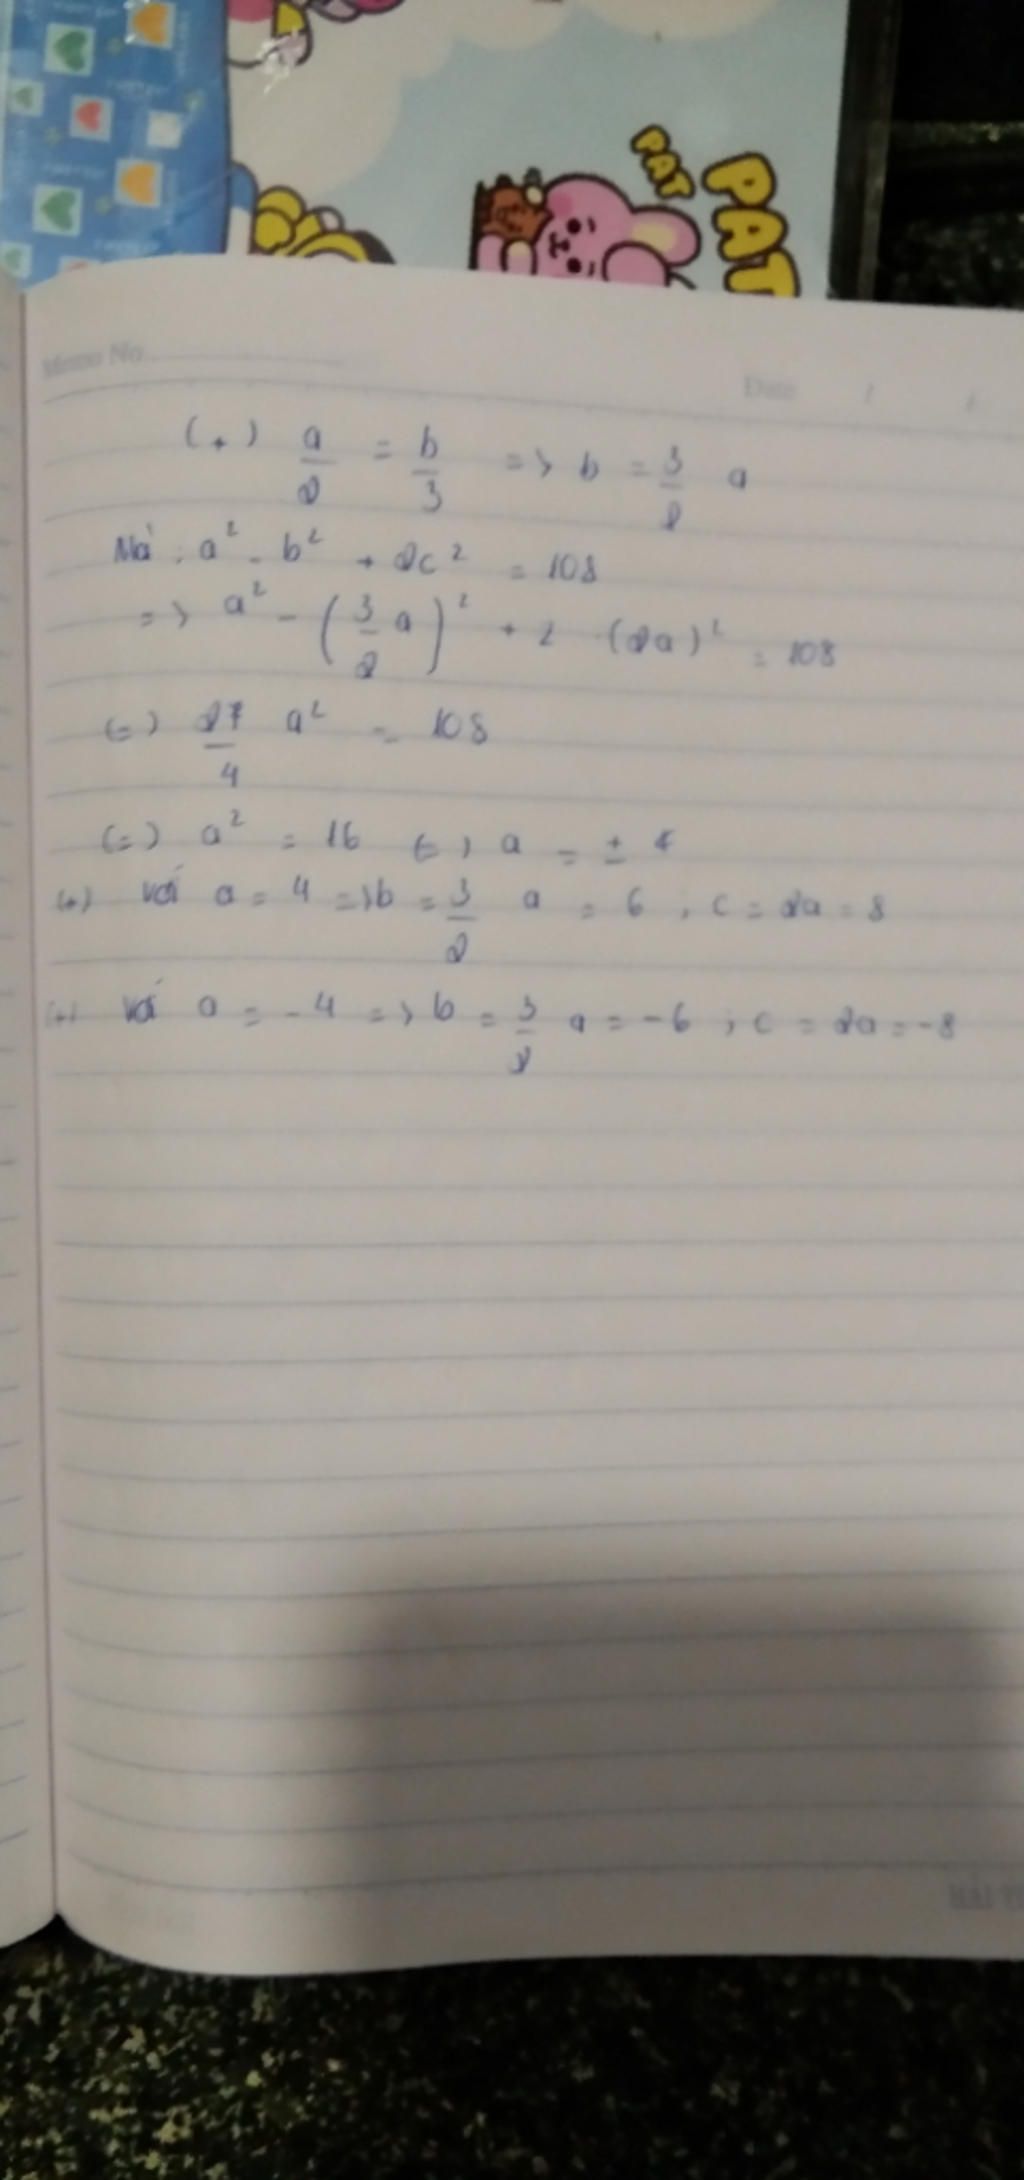 PAT
PAT
Memo No
Date / /
(+) a/2 = b/3 => b = 3/2 a
Mà : a² - b² + 2c² = 108
=> a² - (3/2 a)² + 2 (2a)² = 108
(=) 27/4 a² = 108
(=) a² = 16 (=) a = ± 4
(+) với a = 4 => b = 3/2 a = 6 , c = 2a = 8
(+) với a = -4 => b = 3/2 a = -6 ; c = 2a = -8